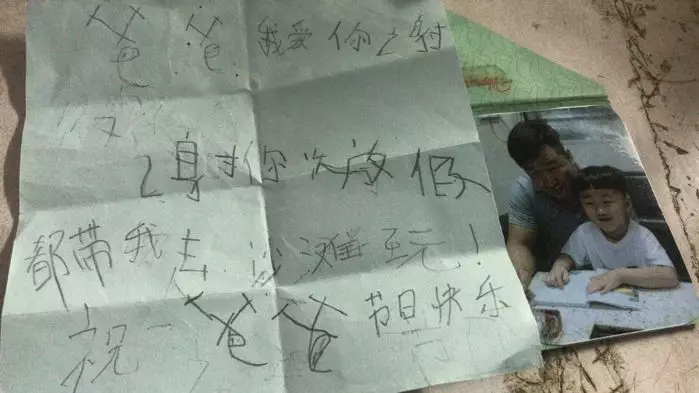 爸爸 我爱你谢
谢你次放假
都带我去沙滩玩！
祝爸爸节日快乐